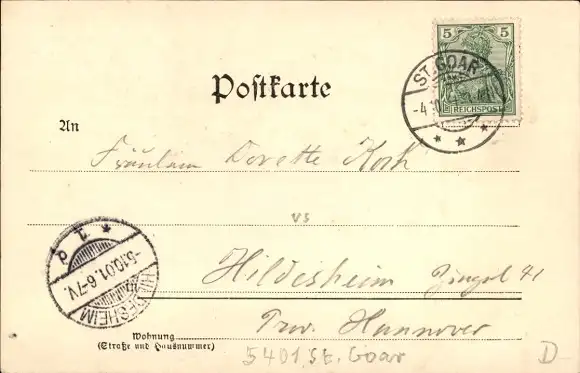 5 5
REICHSPOST
ST. GOAR
-4.10
Postkarte
An
Fräulein Dorette Koch
vs
Hildesheim Zingel 41
Prov. Hannover
HILDESHEIM
-5.10.01.6-7V.
Wohnung
(Straße und Hausnummer)
5401 St. Goar
D